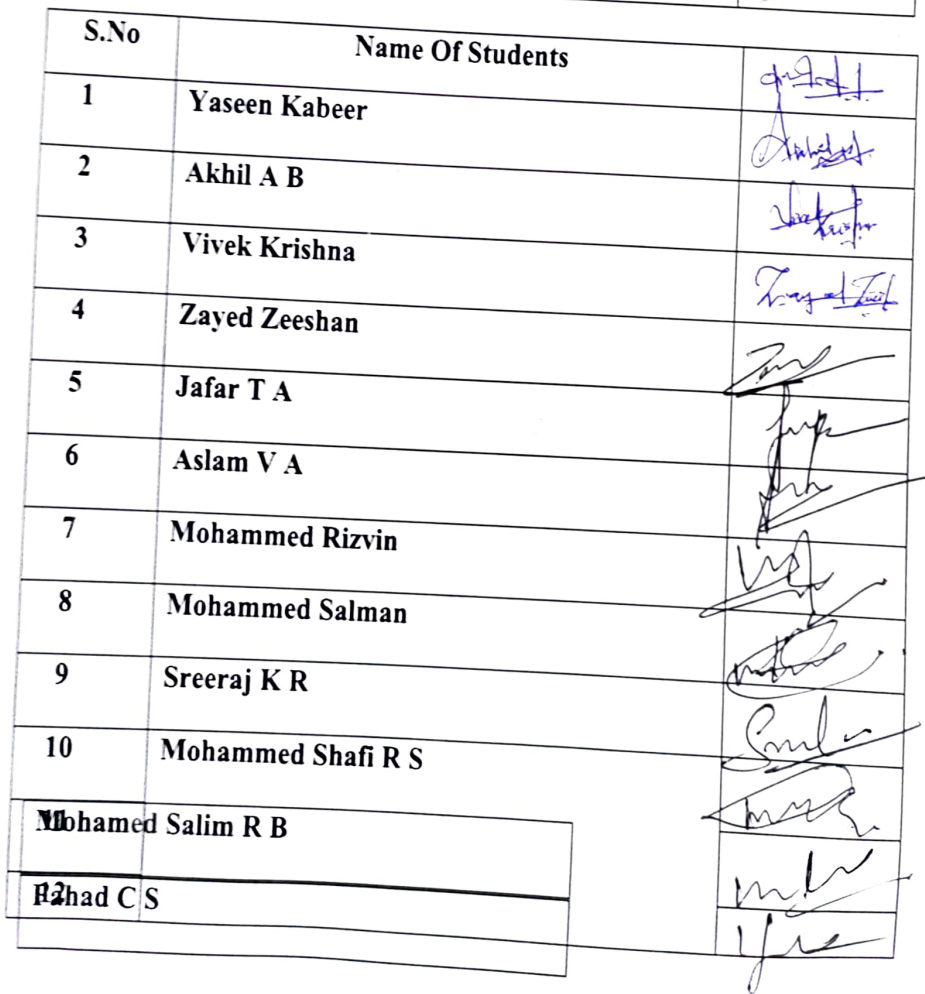 S.No Name Of Students
1 Yaseen Kabeer
2 Akhil A B
3 Vivek Krishna
4 Zayed Zeeshan
5 Jafar T A
6 Aslam V A
7 Mohammed Rizvin
8 Mohammed Salman
9 Sreeraj K R
10 Mohammed Shafi R S
11 Mohamed Salim R B
12 Fahad C S